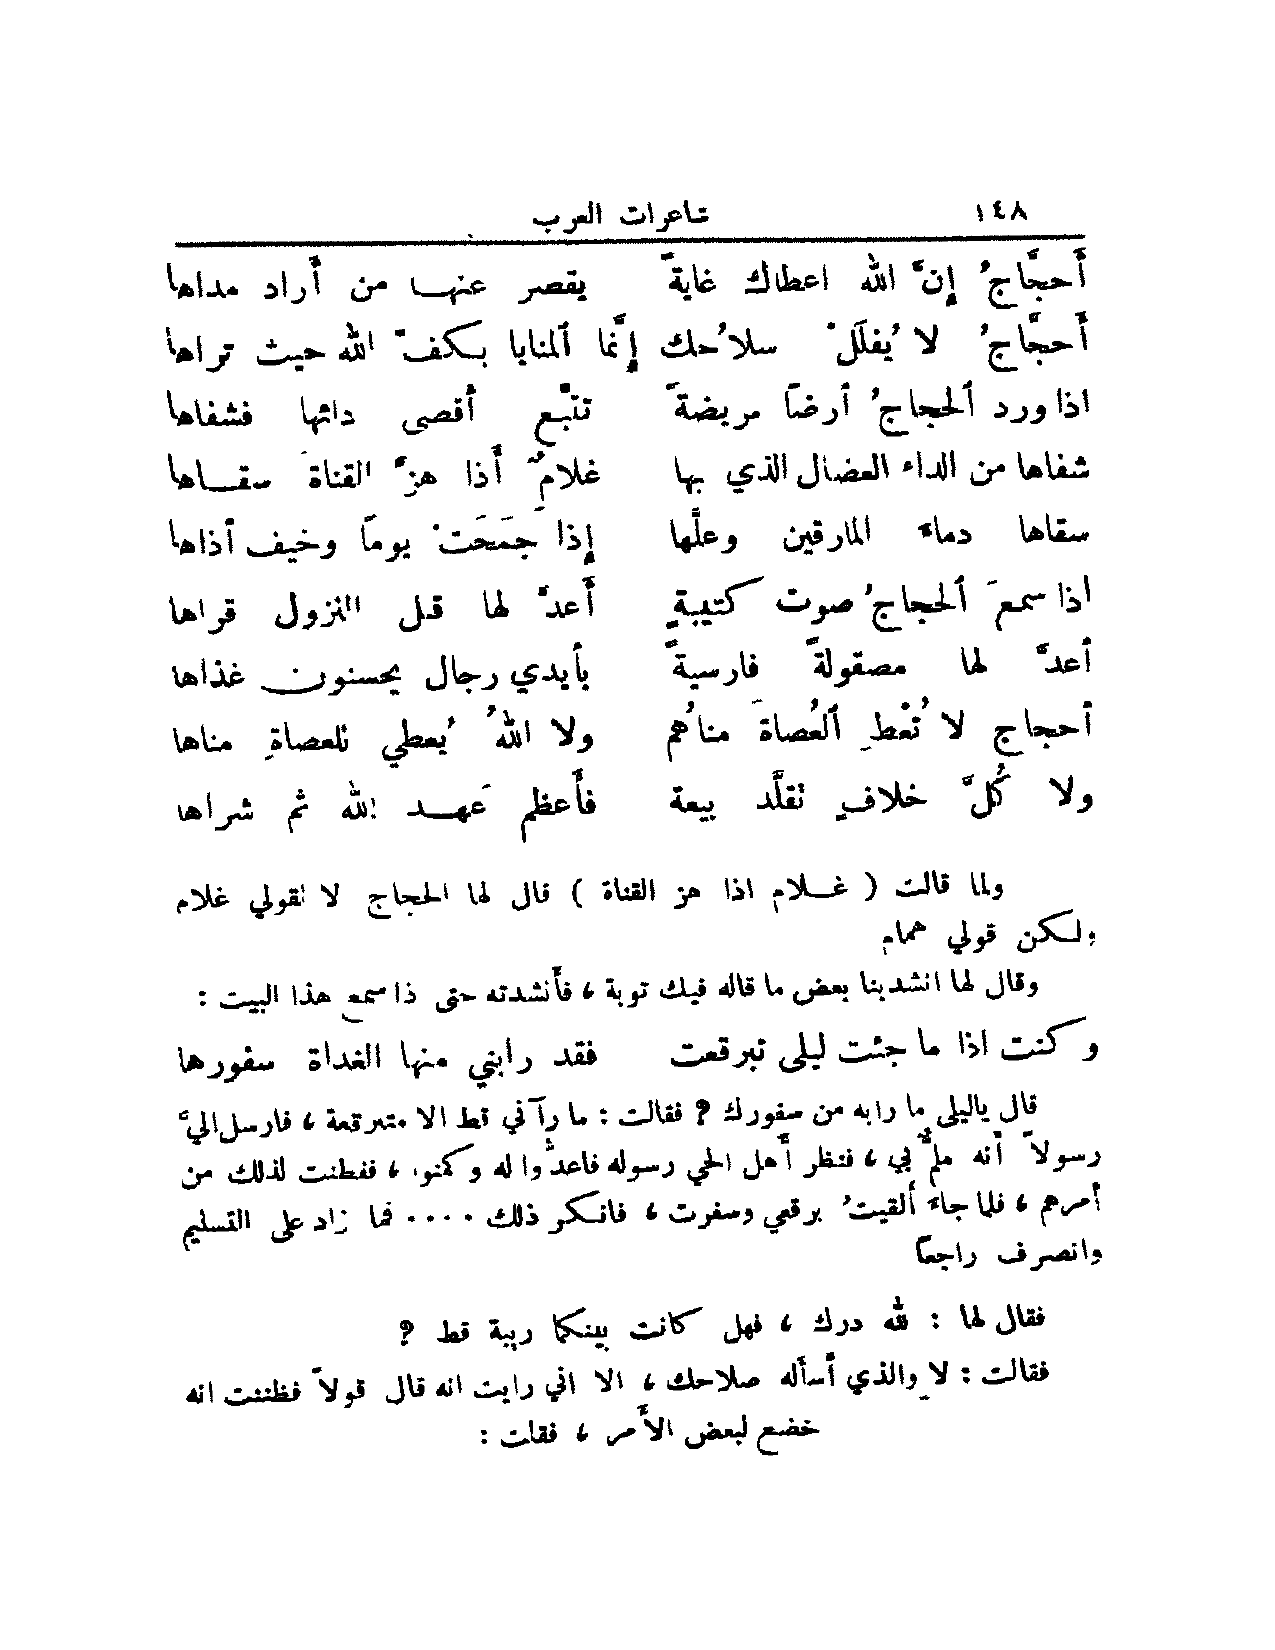 ١٤٨ شاعرات العرب
أَحجَّاجُ إِنَّ الله اعطاك غايةً يقصر عنها من أَراد مداها
أَحجَّاجُ لا يُفلَلْ سلاحُك إِنَّما ٱلمنايا بكفِّ الله حيث تراها
اذا ورد ٱلحجاجُ أرضاً مريضةً تتبَّع أقصى دائها فشفاها
شفاها من الداء العضال الذي بها غلامٌ أَذا هزَّ القناةَ سقاها
سقاها دماء المارقين وعلَّها إِذا جَمَحَتْ يوماً وخيف أذاها
اذا سمعَ ٱلحجاجُ صوت كتيبةٍ أَعدَّ لها قبل النزول قراها
أعدَّ لها مصقولةً فارسيةً بأيدي رجال يحسنون غذاها
أحجاج لا تُعْطِ ٱلعُصاةَ مناهُم ولا اللهُ يُعطي للعصاةِ مناها
ولا كُلَّ خلافٍ تقلَّد بيعة فأَعظم عَهد الله ثم شراها
ولما قالت ( غلام اذا هز القناة ) قال لها الحجاج لا تقولي غلام
ولكن قولي همام
وقال لها انشدينا بعض ما قاله فيك توبة ، فأَنشدته حتى ذا سمع هذا البيت :
وكنت اذا ما جئت ليلى تبرقعت فقد رابني منها الغداة سفورها
قال ياليلى ما رابه من سفورك ؟ فقالت : ما رآني قط الا متبرقعة ، فارسل اليَّ
رسولاً أنه ملمٌّ بي ، فنظر أَهل الحي رسوله فاعدُّوا له وكمنوا ، ففطنت لذلك من
أمرهم ، فلما جاء ألقيتُ برقعي وسفرت ، فانكر ذلك .... فما زاد على التسليم
وانصرف راجعاً
فقال لها : لله درك ، فهل كانت بينكما ريبة قط ؟
فقالت : لا والذي أَسأله صلاحك ، الا اني رايت انه قال قولاً فظننت انه
خضع لبعض الأَمر ، فقلت :